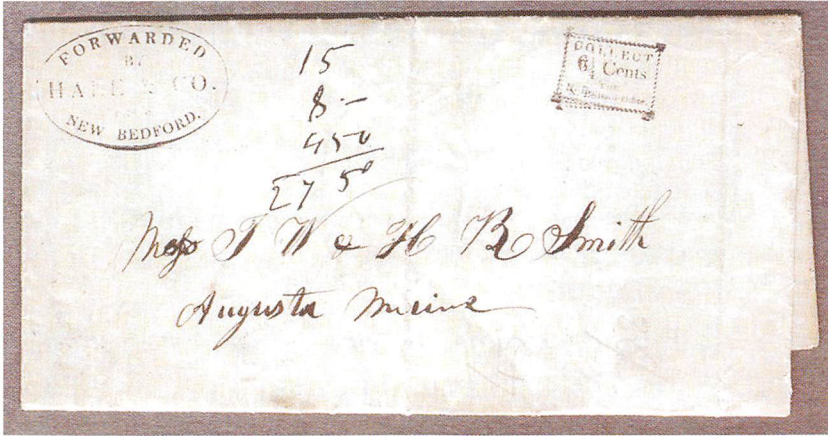 FORWARDED
BY
HALE & CO.
NEW BEDFORD.
15
8 -
450
27 50
COLLECT
6¼ Cents
Mess J W & H R Smith
Augusta Maine